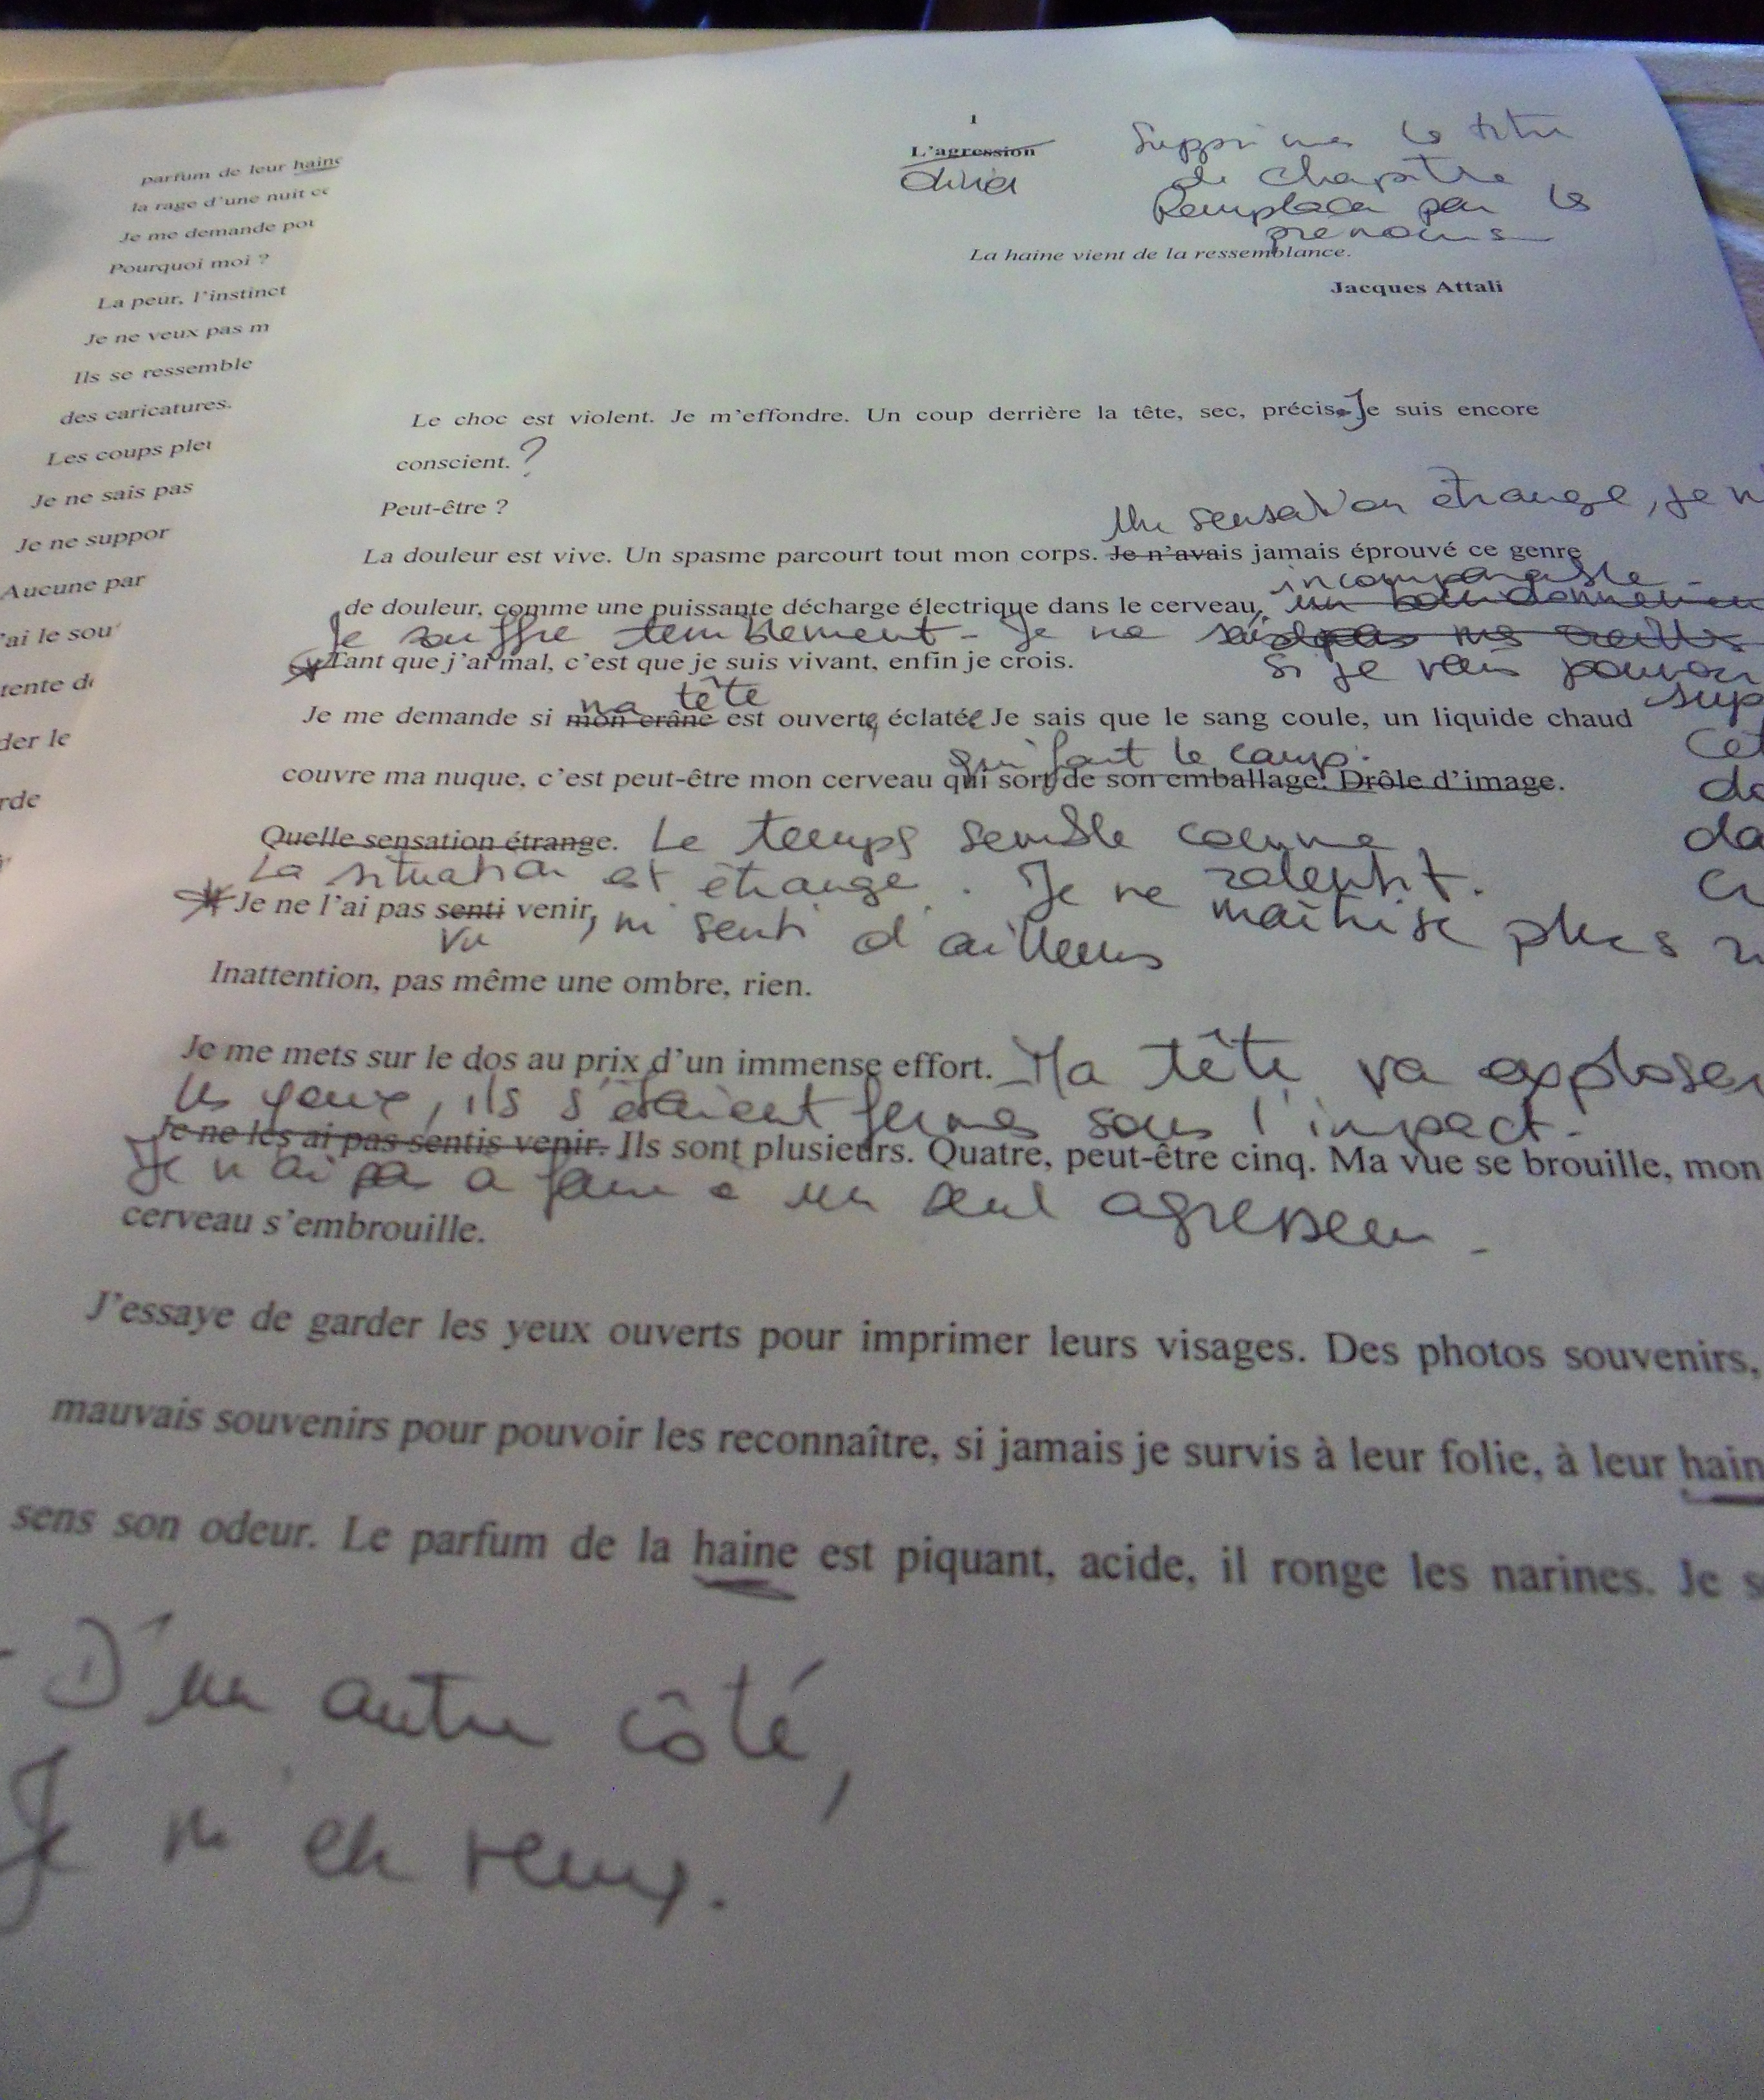 parfum de leur haine
la rage d'une nuit
Je me demande
Pourquoi moi ?
La peur, l'instinct
Je ne veux pas
Ils se ressemble
des caricatures.
Les coups
Je ne sais pas
Je ne
Aucune
'ai le
tente
der le
rde
1
L'agression
Supprimer le titre
de chapitre
Remplacer par le
prénoms
La haine vient de la ressemblance.
Jacques Attali
Le choc est violent. Je m'effondre. Un coup derrière la tête, sec, précis. Je suis encore
conscient. ?
Peut-être ?
Une sensation étrange, je
La douleur est vive. Un spasme parcourt tout mon corps. Je n'avais jamais éprouvé ce genre
incomparable.
de douleur, comme une puissante décharge électrique dans le cerveau,
Je souffre terriblement - Je ne sais pas
Tant que j'ai mal, c'est que je suis vivant, enfin je crois.
si je vais pouvoir
ma tête
Je me demande si mon crâne est ouverte, éclatée Je sais que le sang coule, un liquide chaud
qui fout le camp.
couvre ma nuque, c'est peut-être mon cerveau qui sort de son emballage. Drôle d'image.
Quelle sensation étrange. Le temps semble comme
ralentit.
La situation est étrange. Je ne maîtrise plus
Je ne l'ai pas senti venir, ni senti d'ailleurs
vu
Inattention, pas même une ombre, rien.
Je me mets sur le dos au prix d'un immense effort. Ma tête va exploser
les yeux, ils s'étaient fermés sous l'impact.
Je ne les ai pas sentis venir. Ils sont plusieurs. Quatre, peut-être cinq. Ma vue se brouille, mon
Je n'ai pas a faire a un seul agresseur.
cerveau s'embrouille.
J'essaye de garder les yeux ouverts pour imprimer leurs visages. Des photos souvenirs,
mauvais souvenirs pour pouvoir les reconnaître, si jamais je survis à leur folie, à leur hain
sens son odeur. Le parfum de la haine est piquant, acide, il ronge les narines. Je
- D'un autre côté,
Je m'en